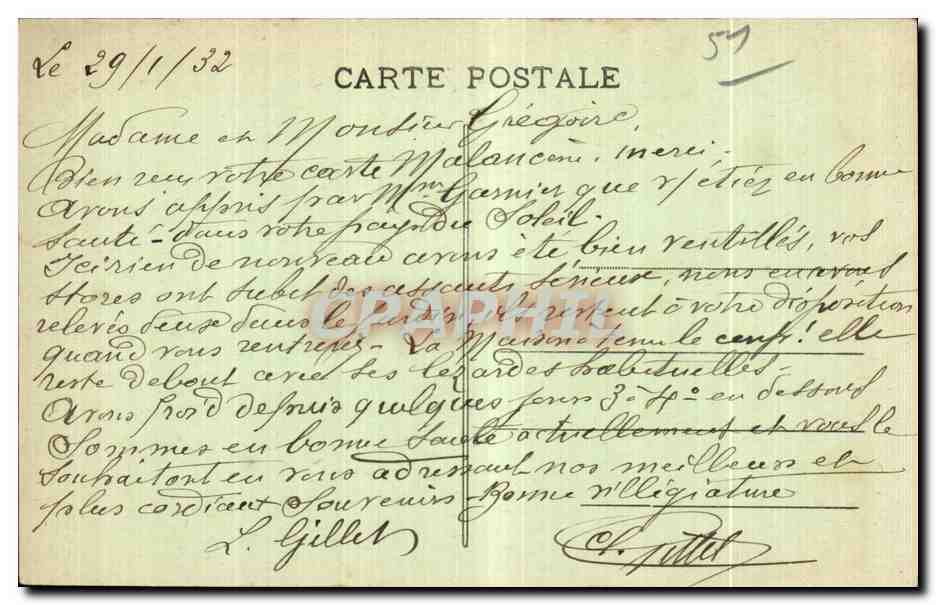 Le 29/1/32
51
CARTE POSTALE
Madame et Monsieur Grégoire,
Bien reçu votre carte Malaucène. merci -
Avons appris par Mme Garnier que v/ étiez en bonne
santé - dans votre pays du Soleil -
Ici rien de nouveau avons été bien ventillés, vos
stores ont subit des assauts sérieux, nous en avons
relevés deux dans le jardin, ils restent à votre disposition
quand vous rentrerez - La Maison a tenu le coup! elle
reste debout avec ses lezardes habituelles -
Avons froid depuis quelques jours 3 à 4° en dessous
Sommes en bonne santé actuellement et vous le
souhaitont en vous adressant nos meilleurs et
plus cordiaux Souvenirs - Bonne villégiature
L. Gillet
Ch. Gillet
CPAPHIL